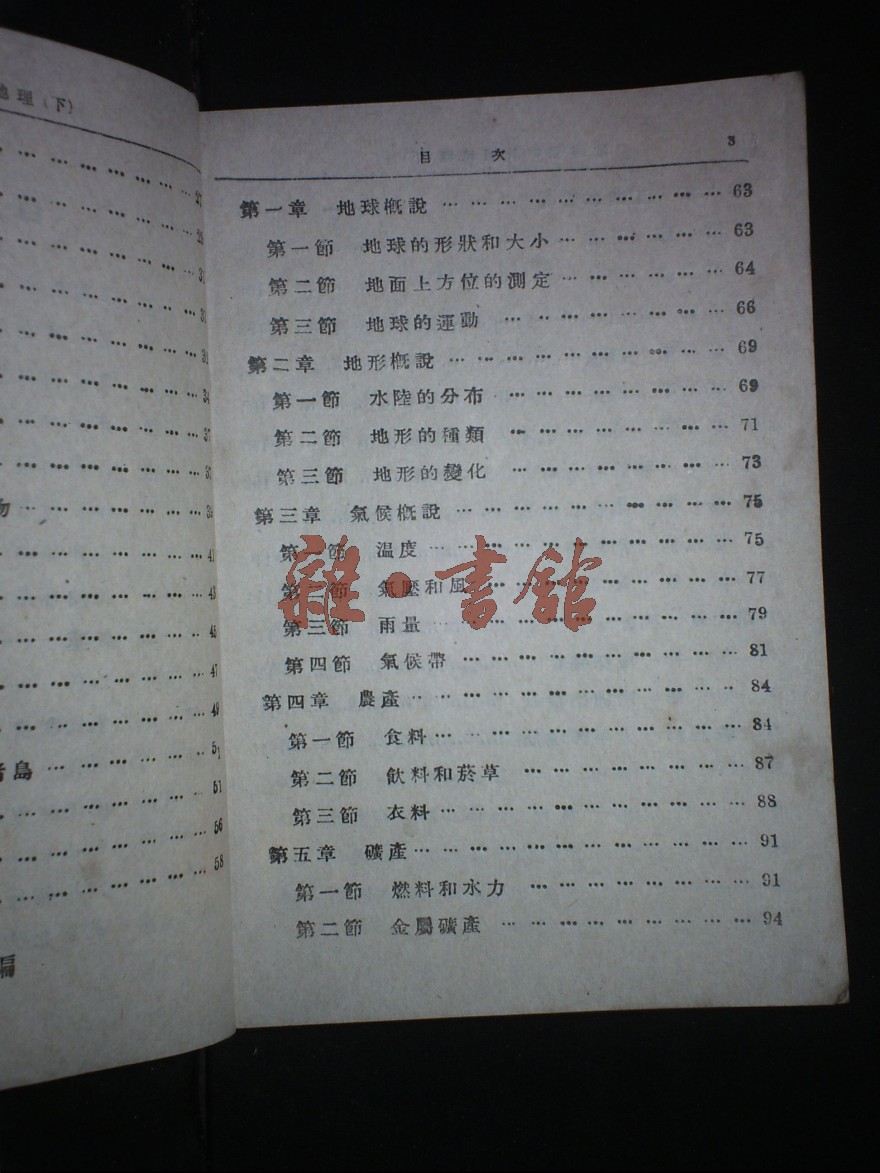 地理(下)
27
29
31
31
31
34
37
37
物 … 39
41
43
45
47
49
51
島 … 51
56
58
編
目 次 3
第一章 地球概說 … 63
第一節 地球的形狀和大小 … 63
第二節 地面上方位的測定 … 64
第三節 地球的運動 … 66
第二章 地形概說 … 69
第一節 水陸的分布 … 69
第二節 地形的種類 … 71
第三節 地形的變化 … 73
第三章 氣候概說 … 75
第一節 温度 … 75
第二節 氣壓和風 … 77
第三節 雨量 … 79
第四節 氣候帶 … 81
第四章 農產 … 84
第一節 食料 … 84
第二節 飲料和菸草 … 87
第三節 衣料 … 88
第五章 礦產 … 91
第一節 燃料和水力 … 91
第二節 金屬礦產 … 94
雜·書館